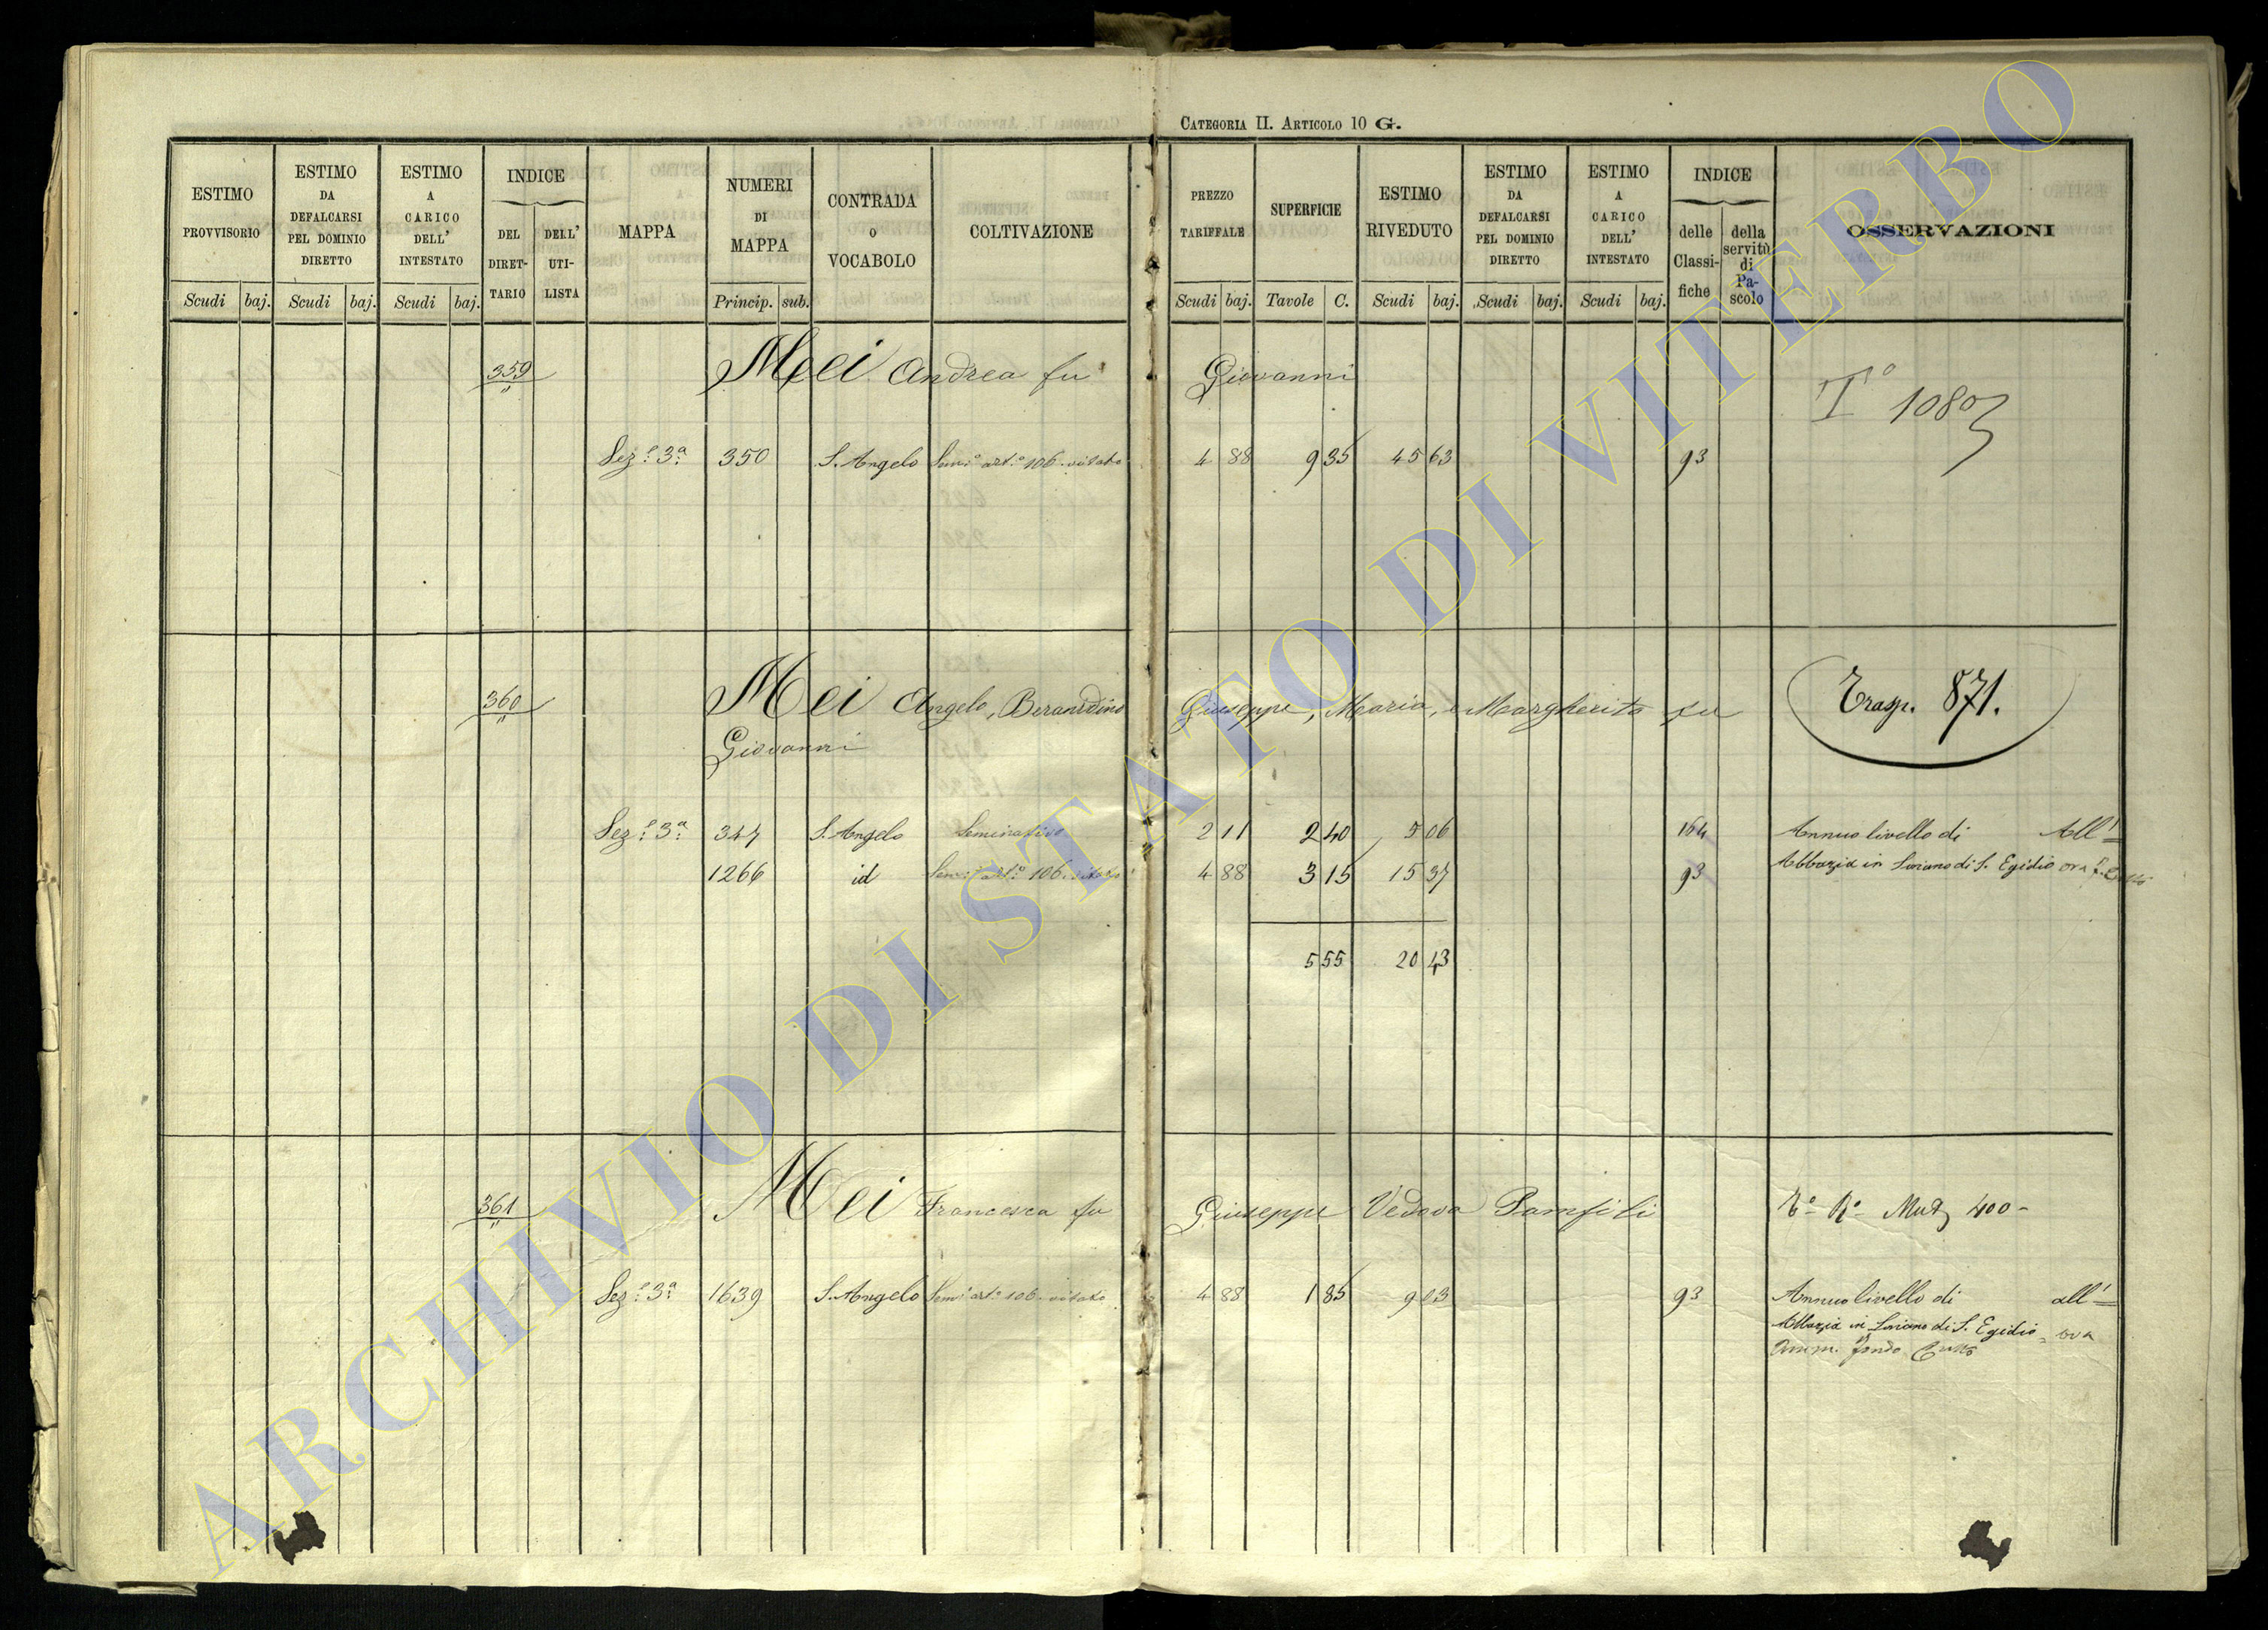 CATEGORIA II. ARTICOLO 10 G.
ESTIMO PROVVISORIO
Scudi baj.
ESTIMO DA DEFALCARSI PEL DOMINIO DIRETTO
Scudi baj.
ESTIMO A CARICO DELL' INTESTATO
Scudi baj.
INDICE
DEL DIRET-TARIO
DELL' UTI-LISTA
MAPPA
NUMERI DI MAPPA
Princip. sub.
CONTRADA O VOCABOLO
COLTIVAZIONE
PREZZO TARIFFALE
Scudi baj.
SUPERFICIE
Tavole C.
ESTIMO RIVEDUTO
Scudi baj.
ESTIMO DA DEFALCARSI PEL DOMINIO DIRETTO
Scudi baj.
ESTIMO A CARICO DELL' INTESTATO
Scudi baj.
INDICE
delle Classi-fiche
della servitù di Pa-scolo
OSSERVAZIONI
359 Mei Andrea fu Giovanni
T° 1080
Sez.e 3a 350 S. Angelo Sem.o art.o 106. vitato 4 88 9 35 45 63 93
360 Mei Angelo, Berardino Giuseppe, Maria, e Margherita fu
Giovanni
Trasp. 871.
Sez.e 3a 347 S. Angelo Seminativo 2 11 2 40 5 06 164 Annuo livello di All'
1266 id Sem.o art.o 106. vitato 4 88 3 15 15 37 93 Abbazia in Soriano di S. Egidio ora
5 55 20 43
361 Mei Francesca fu Giuseppe Vedova Pamfili
Mut 400
Sez.e 3a 1639 S. Angelo Sem.o art.o 106. vitato 4 88 1 85 9 03 93 Annuo livello di all'
Abbazia in Soriano di S. Egidio ora
Amm. fondo Culto
ARCHIVIO DI STATO DI VITERBO